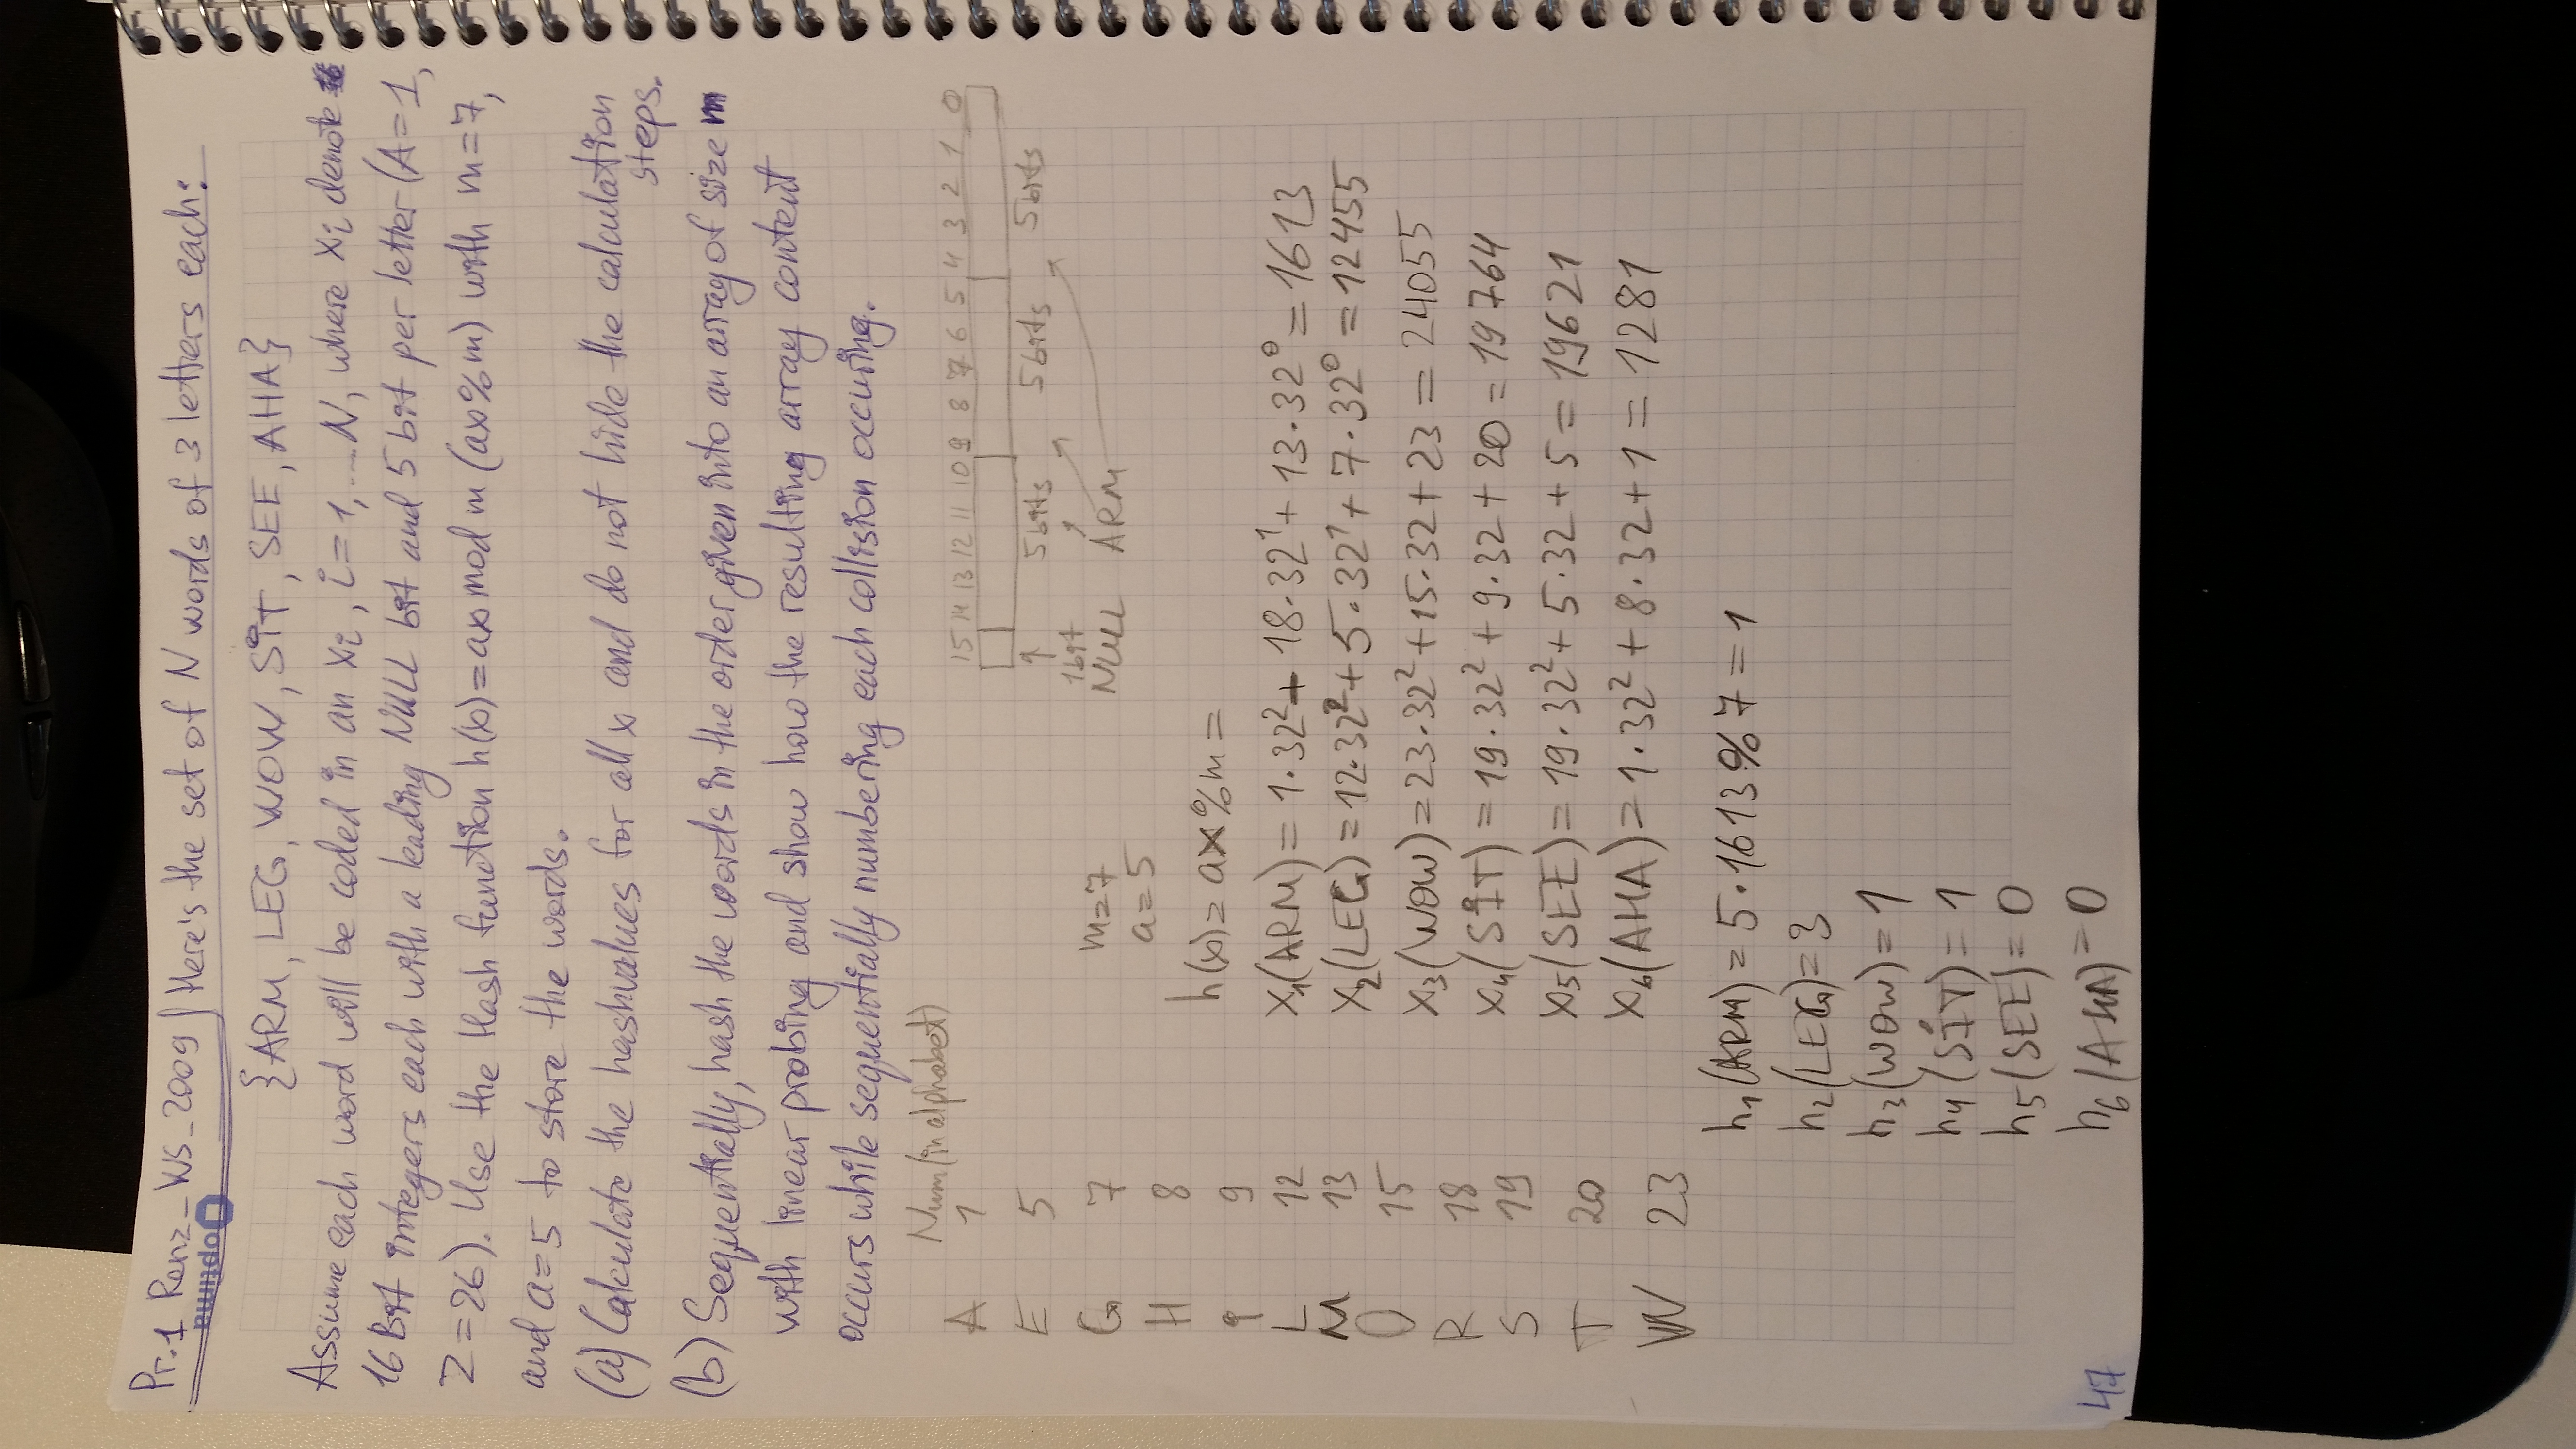 Pr.1 Renz_WS_2009 Here's the set of N words of 3 letters each:
Optima
{ARM, LEG, WOW, SIT, SEE, AHA}
Assume each word will be coded in an xi, i=1,....N, where xi denote
16 Bit integers each with a leading NULL bit and 5 bit per letter (A=1,
Z=26). Use the Hash function h(x)=ax mod m (ax%m) with m=7,
and a=5 to store the words.
(a) Calculate the hashvalues for all x and do not hide the calculation
steps.
(b) Sequentially, hash the words in the order given into an array of size m
with linear probing and show how the resulting array content
occurs while sequentially numbering each collision occuring.
Num (in alphabet)
A 1
E 5
G 7
H 8
I 9
L 12
M 13
O 15
R 18
S 19
T 20
W 23
15 14 13 12 11 10 9 8 7 6 5 4 3 2 1 0
5bits 5bits 5bits
1bit
NULL ARM
m=7
a=5
h(x)=ax%m=
x1(ARM)=1·32²+18·32¹+13·32⁰=1613
x2(LEG)=12·32²+5·32¹+7·32⁰=12455
x3(WOW)=23·32²+15·32+23=24055
x4(SIT)=19·32²+9·32+20=19764
x5(SEE)=19·32²+5·32+5=19621
x6(AHA)=1·32²+8·32+1=1281
h1(ARM)=5·1613%7=1
h2(LEG)=3
h3(WOW)=1
h4(SIT)=1
h5(SEE)=0
h6(AHA)=0
47